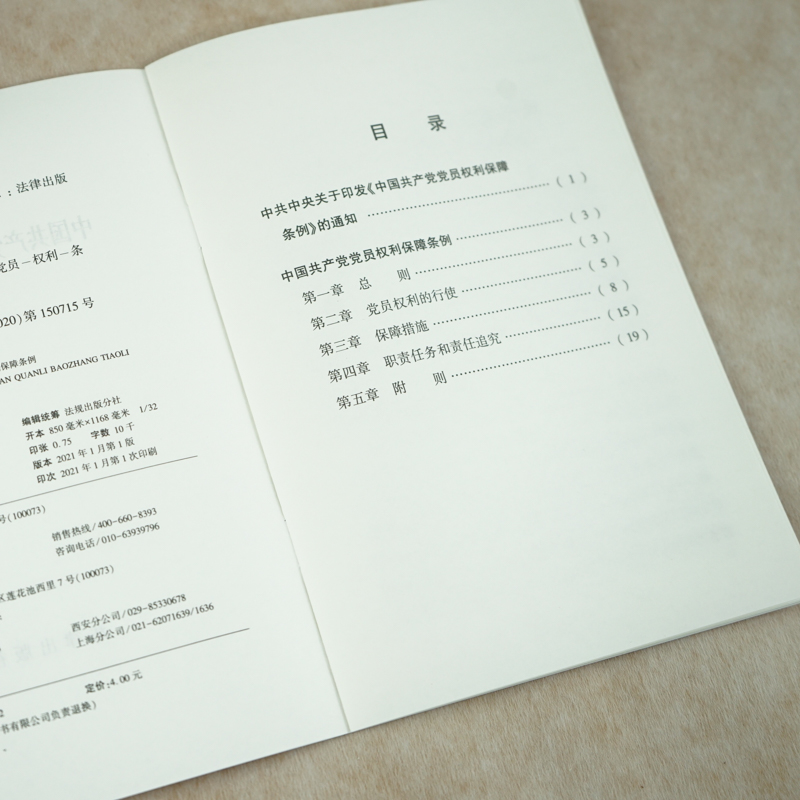 ：法律出版
党员－权利－条
020)第 150715 号
保障条例
AN QUANLI BAOZHANG TIAOLI
编辑统筹 法规出版分社
开本 850 毫米×1168 毫米 1/32
印张 0.75 字数 10 千
版本 2021 年 1 月第 1 版
印次 2021 年 1 月第 1 次印刷
号(100073)
销售热线/400-660-8393
咨询电话/010-63939796
区莲花池西里 7 号(100073)
西安分公司/029-85330678
上海分公司/021-62071639/1636
定价:4.00 元
2
书有限公司负责退换)
目 录
中共中央关于印发《中国共产党党员权利保障
条例》的通知 ……………………………………（ 1 ）
中国共产党党员权利保障条例 ……………………（ 3 ）
第一章 总 则 ……………………………（ 3 ）
第二章 党员权利的行使 ……………………（ 5 ）
第三章 保障措施 ……………………………（ 8 ）
第四章 职责任务和责任追究 ………………（ 15 ）
第五章 附 则 ……………………………（ 19 ）